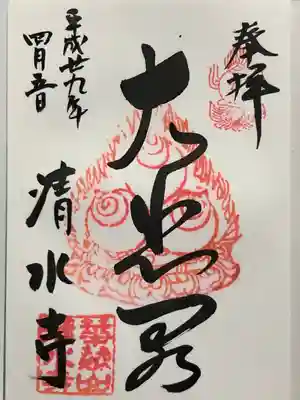 奉拝
大悲閣
平成廿九年
四月五日
清水寺